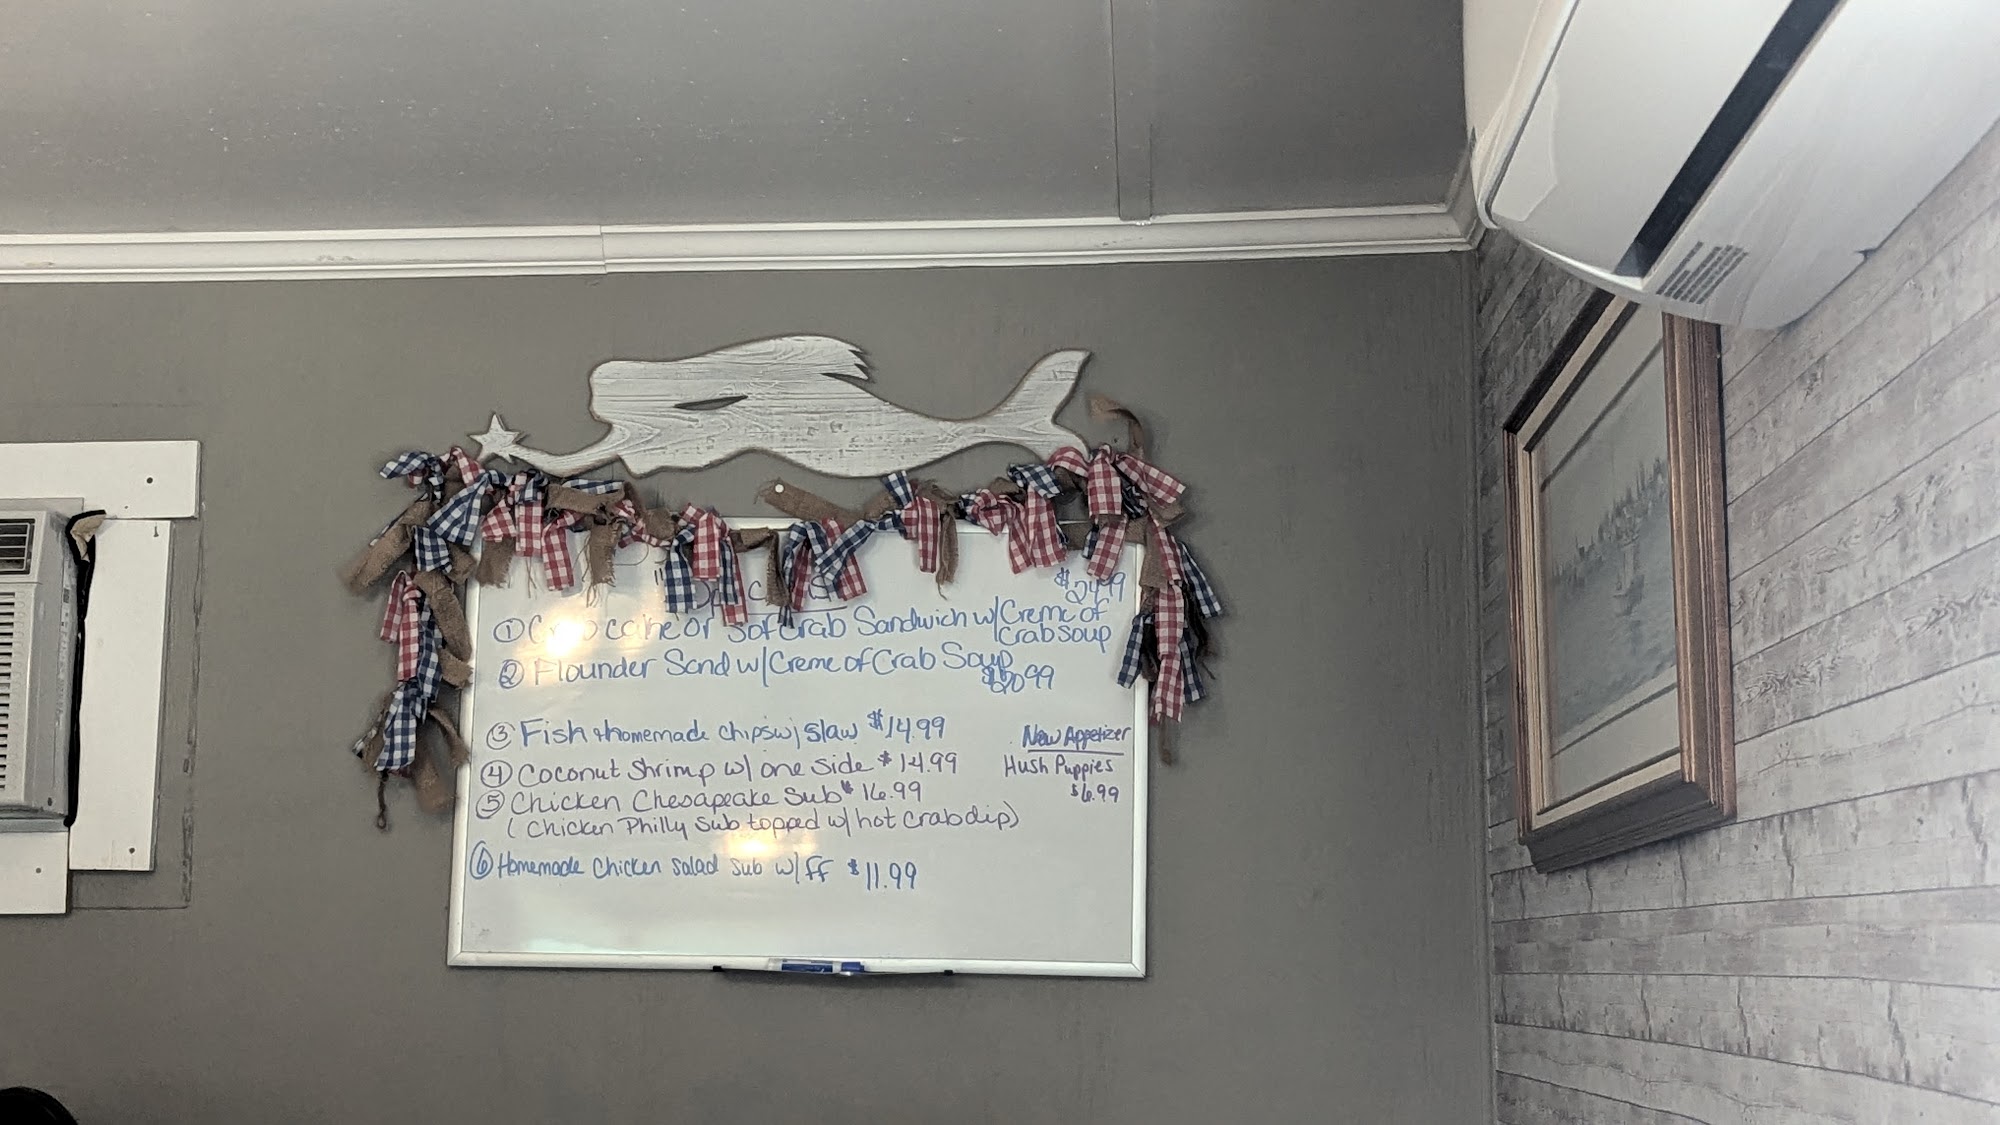 $24.99
① Crab cake or Sof Crab Sandwich w/ Creme of
Crab Soup
② Flounder Sand w/ Creme of Crab Soup
$20.99
③ Fish + homemade chips w/ slaw $14.99
④ Coconut Shrimp w/ one side $14.99
⑤ Chicken Chesapeake Sub $16.99
(Chicken Philly Sub topped w/ hot crab dip)
⑥ Homemade Chicken salad sub w/ ff $11.99
New Appetizer
Hush Puppies
$6.99